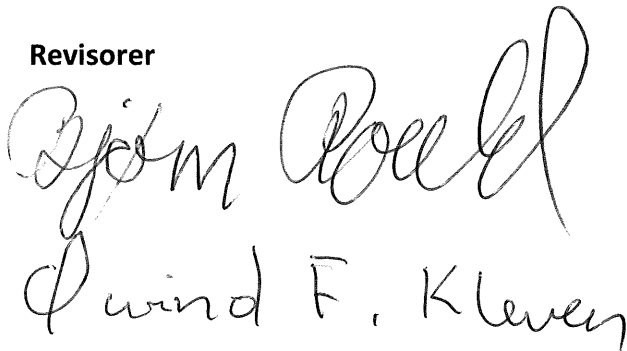 Revisorer
Bjørn
Øivind F. Kleven